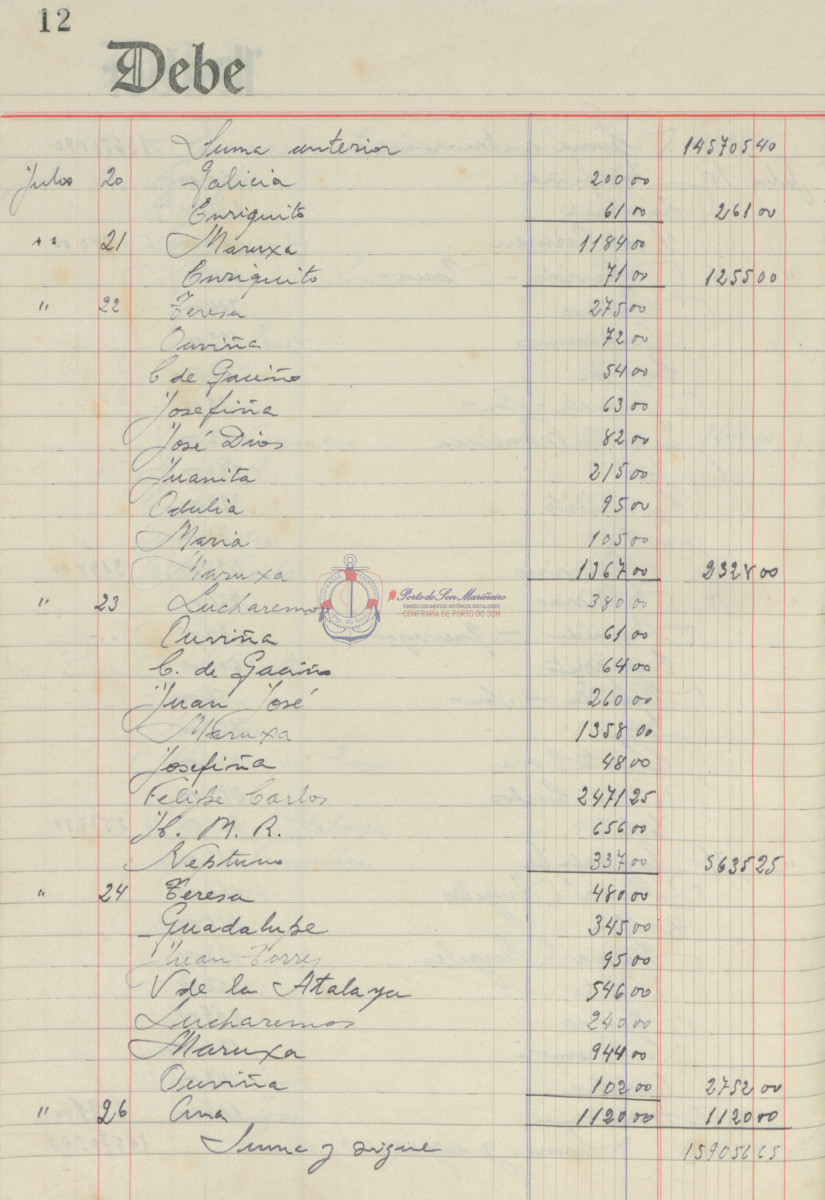 12
Debe
Suma anterior 145705 40
Julio 20 Galicia 200 00
Enriquito 61 00 261 00
" 21 Maruxa 1184 00
Enriquito 71 00 1255 00
" 22 Teresa 275 00
Ouviña 72 00
C de Gaciño 54 00
Josefiña 63 00
José Dios 82 00
Juanita 215 00
Odulia 95 00
Maria 105 00
Maruxa 1367 00 2328 00
" 23 Lucharemos 380 00
Ouviña 61 00
C. de Gaciño 64 00
Juan José 260 00
Maruxa 1358 00
Josefiña 48 00
Felipe Carlos 2471 25
M. R. 656 00
Neptuno 337 00 5635 25
" 24 Teresa 480 00
Guadalupe 345 00
Juan Torres 95 00
V de la Atalaya 546 00
Lucharemos 240 00
Maruxa 944 00
Ouviña 102 00 2752 00
" 26 Ana 1120 00 1120 00
Suma y sigue 159056 65
Porto do Son Mariñeiro
FONDOS DOCUMENTAIS HISTÓRICOS DIXITALIZADOS
CONFRARÍA DE PORTO DO SON